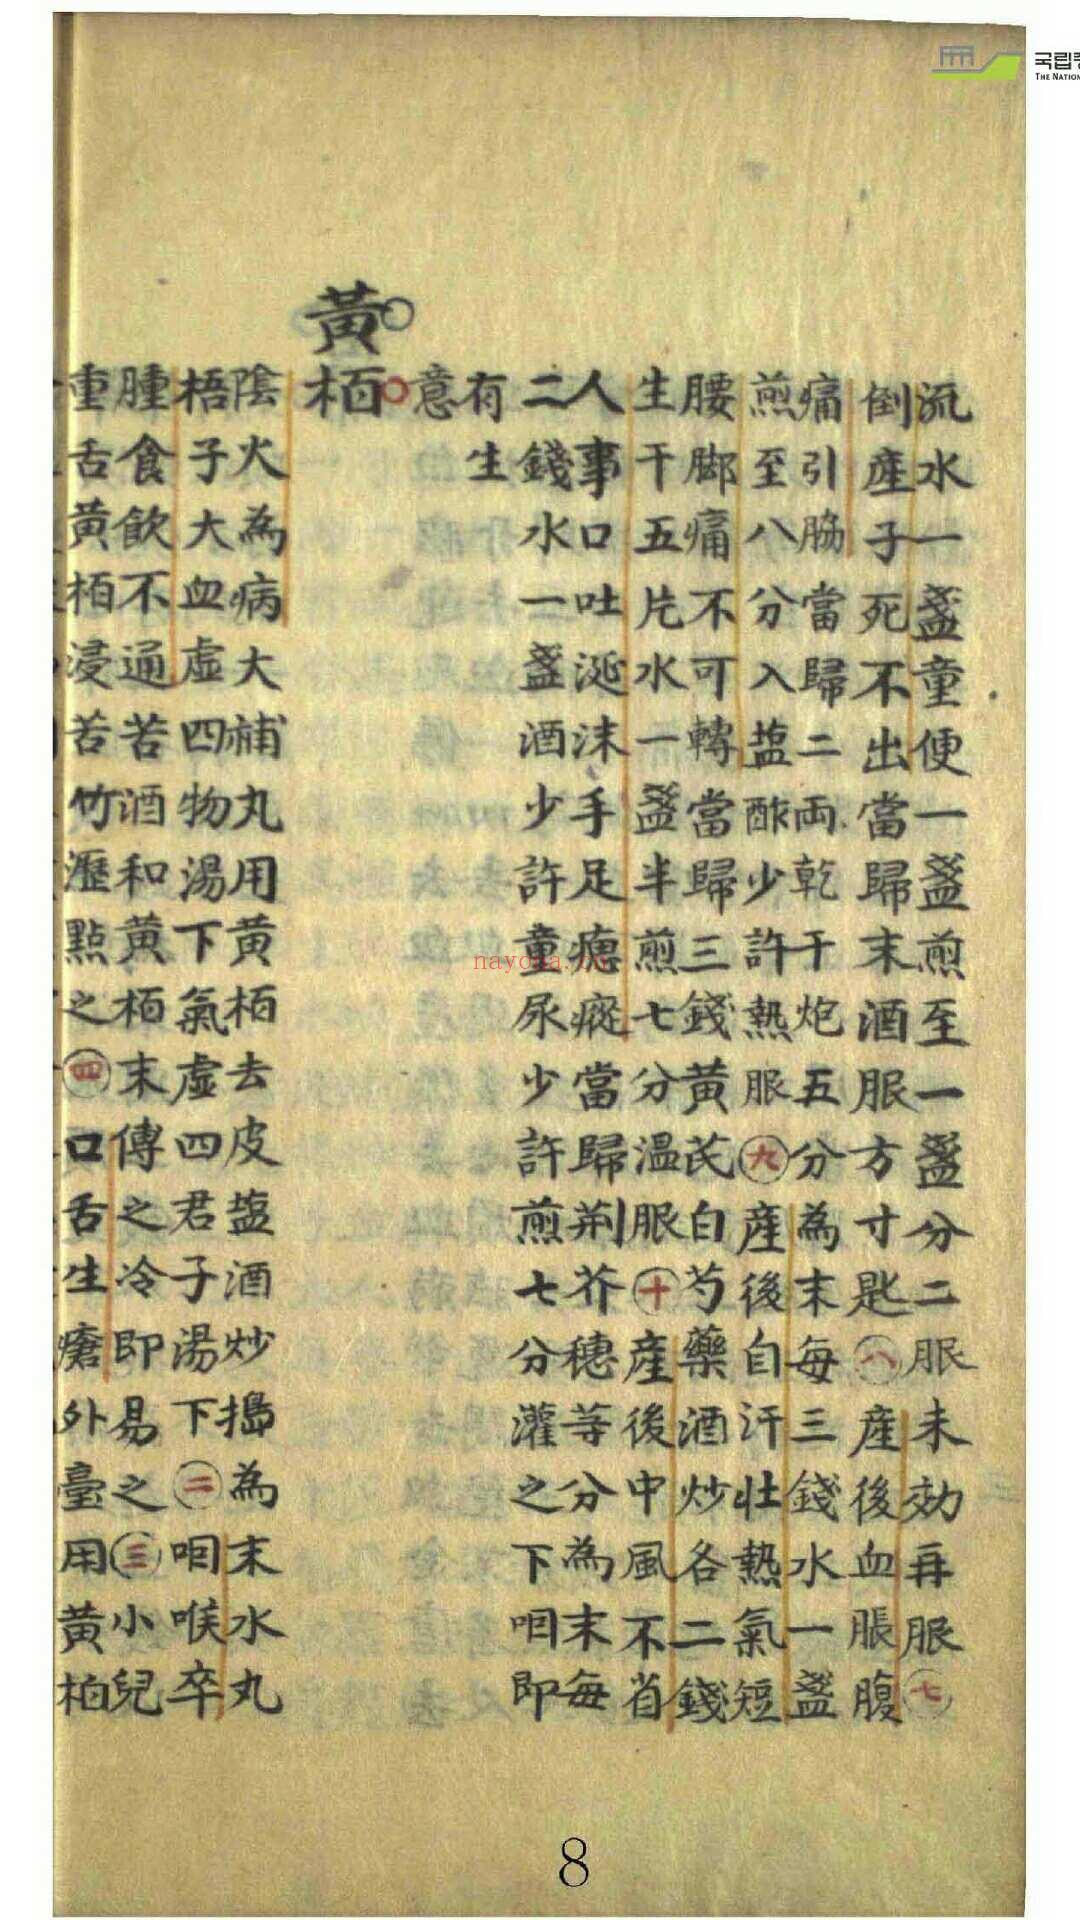 流水一盞童便一盞煎至一盞分二服未効再服七
倒産子死不出當歸末酒服方寸匙八産後血脹腹
痛引脇當歸二両乾干炮五分為末每三錢水一盞
煎至八分入塩酢少許熱服九産後自汗壯熱氣短
腰脚痛不可轉當歸三錢黄芪白芍藥酒炒各二錢
生干五片水一盞半煎七分温服十産後中風不省
人事口吐涎沫手足瘛瘲當歸荆芥穗等分為末每
二錢水一盞酒少許童尿少許煎七分灌之下咽即
有生
意
黃栢
陰火為病大補丸用黄栢去皮塩酒炒搗為末水丸
梧子大血虚四物湯下氣虚四君子湯下二咽喉卒
腫食飲不通苦酒和黄栢末傅之冷即易之三小兒
重舌黄栢浸苦竹瀝點之四口舌生瘡外臺用黄柏
国립중
THE NATION
nayona.cn
8